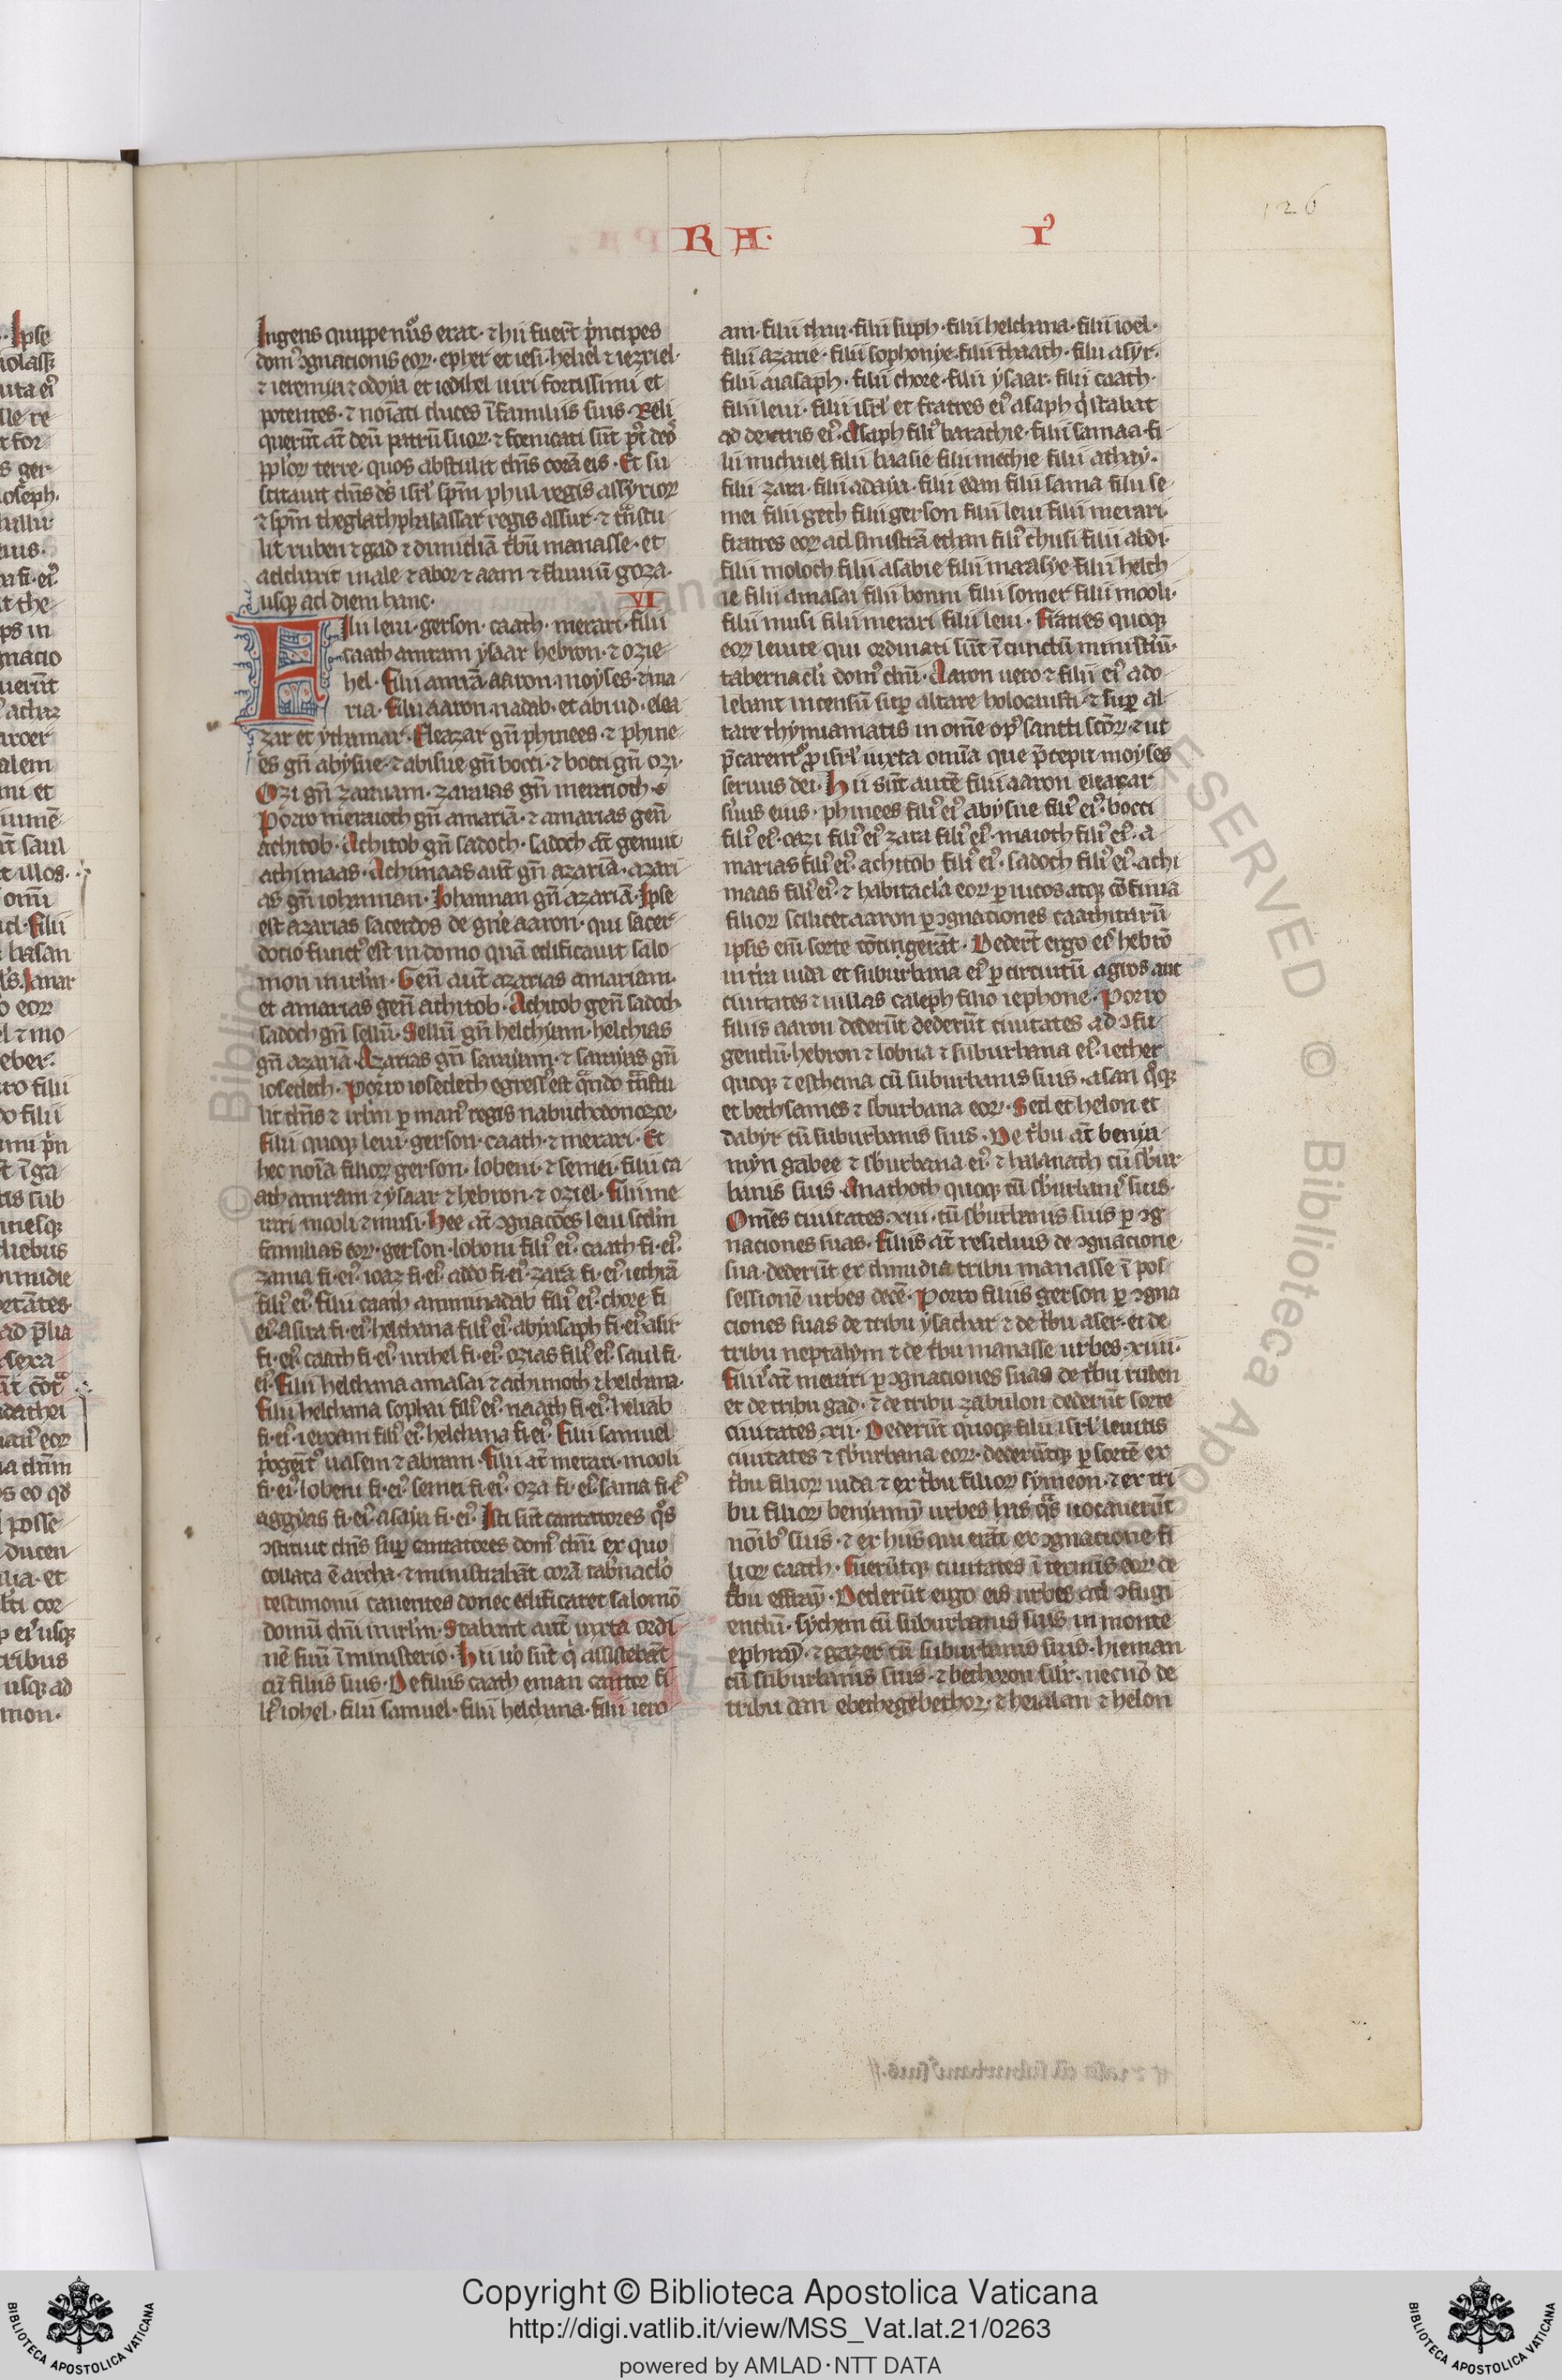 126
RA·
I
Ingens quippe nu͛s erat · ⁊ hii fuer̄t p̄ncipes
dom᷒ ꝯgnationis eoꝝ · epher et iesi · heliel ⁊ iezriel·
⁊ ieremia ⁊ odoya et iedihel uiri fortissimi et
potentes · ⁊ noīati duces ī familiis suis · Reli
querūt aūt deū patrū suoꝝ · ⁊ fornicati sūt pꝰt deos
pploꝝ terre · quos abstulit dn̄s corā eis · Et su
scitauit dn̄s dꝰs isrl̄ spm̄ phul regis assyrioꝝ
⁊ spm̄ theglathphalassar regis assur · ⁊ tn̄stu
lit ruben ⁊ gad ⁊ dimidiā tbū manasse · et
adduxit in ale ⁊ abor ⁊ aam ⁊ fluuiū goza·
usqꝫ ad diem hanc· VI
Filii leui · gerson · caath · merari · filii
caath amram ysaar hebron · ⁊ ozie
hel · Filii amrā aaron moyses · ⁊ ma
ria · Filii aaron · nadab · et abiud · elea
zar et ythamar · Eleazar gn̄ phinees · ⁊ phine
es gn̄ abysue · ⁊ abisue gn̄ bocci · ⁊ bocci gn̄ ozi·
Ozi gn̄ zaraiam · zaraias gn̄ meraioth ·
Porro meraioth gn̄ amariā · ⁊ amarias gen̄
achitob · Achitob gn̄ sadoch · sadoch aūt genuit
achimaas · Achimaas aūt gn̄ azariā · azari
as gn̄ iohannan · Iohannan gn̄ azariā · Ipse
est azarias sacerdos de gn̄e aaron · qui sacer
docio functꝰ est in domo quā edificauit salo
mon in irlm̄ · Gen̄ aūt azarias amariam·
et amarias gen̄ achitob · Achitob gen̄ sadoch·
sadoch gn̄ sellū · Sellū gn̄ helchiam · helchias
gn̄ azariā · Azarias gn̄ saraiam · ⁊ saraias gn̄
iosedech · Porro iosedech egressꝰ est qn̄do tn̄stu
lit dn̄s ⁊ irlm̄ ꝑ manꝰ regis nabuchodonozor·
Filii quoqꝫ leui · gerson · caath · ⁊ merari · Et
hec noīa filioꝝ gerson · lobeni · ⁊ semei · filii ca
ath amram ⁊ ysaar ⁊ hebron · ⁊ oziel · Filii me
rari mooli ⁊ musi · Hee aūt ꝯgnacōes leui scdm̄
familias eoꝝ · gerson · loboni filiꝰ eiꝰ · caath fi · eiꝰ
zama fi · eiꝰ · ioaz fi · eiꝰ · addo fi · eiꝰ · zara fi · eiꝰ · iethrā
filiꝰ eiꝰ · filii caath aminadab filiꝰ eiꝰ · chore fi
eiꝰ · asira fi · eiꝰ · helchana filiꝰ eiꝰ · abyasaph fi · eiꝰ · asir
fi · eiꝰ · caath fi · eiꝰ · urihel fi · eiꝰ · ozias filiꝰ eiꝰ · saul fi·
eiꝰ · Filii helchana amasai ⁊ achimoth ⁊ helchana·
Filii helchana sophai filiꝰ eiꝰ · naath fi · eiꝰ · heliab
fi · eiꝰ · ieroam filiꝰ eiꝰ · helchana fi · eiꝰ · Filii samuel
uasem ⁊ abiam · Filii aūt merari · mooli
fi · eiꝰ · lobeni fi · eiꝰ · semei fi · eiꝰ · oza fi · eiꝰ · sama fi · eꝰ
aggyas fi · eiꝰ · asaya fi · eiꝰ · Isti sūt cantatores qͦs
ꝯstituit dn̄s sup cantatores domꝰ dn̄i ex quo
collata ē archa · ⁊ ministrabāt corā tabn̄aclo
testimonii canentes donec edificaret salomō
domū dn̄i in irlm̄ · Stabant aūt iuxta ordi
nē suū ī ministerio · Hii uͦ sūt qi assistebāt
cū filiis suis · De filiis caath eman cantor fi
liꝰ iohel · filii samuel · filii helchana · filii iero
am · filii thau · filii suph · filii helchana · filii ioel·
filii azarie · filii sophonye · filii thaath · filii asyr·
filii aiasaph · filii chore · filii ysaar · filii caath·
filii leui · filii isrl̄ et fratres eiꝰ asaph qi stabat
ad dextris eiꝰ · Asaph filiꝰ barachie · filii samaa · fi
lii michael filii basie filii mechie filii athay·
filii zara · filii adaya · filii edan filii sama filii se
mei filii geth filii gerson filii leui filii merari·
fratres eoꝝ ad sinistrā ethan filiꝰ chusi filii abdi·
filii moloch filii asabie filii maasye filii helch
ie filii amasai filii bonni filii somer filii mooli·
filii musi filii merari filii leui · Fratres quoqꝫ
eoꝝ leuite qui ordinati sūt ī cunctū ministiū·
tabernacli domꝰ dn̄i · Aaron uero ⁊ filii eiꝰ ado
lebant incensū sup altare holocausti · ⁊ sup al
tare thymiamatis in om̄e opꝰ sancti scōꝝ · ⁊ ut
p̄carentꝰ ꝓ isrl̄ iuxta om̄ia que p̄cepit moyses
seruus dei · Hii sūt autē filii aaron eleazar
filius eius · phinees filiꝰ eiꝰ abysue filiꝰ eiꝰ · bocci
filiꝰ eiꝰ · oazi filiꝰ eiꝰ zara filiꝰ eiꝰ · maioth filiꝰ eiꝰ · a
marias filiꝰ eiꝰ · achitob filiꝰ eiꝰ · sadoch filiꝰ eiꝰ · achi
maas filiꝰ eiꝰ · ⁊ habitacla eoꝝ ꝑ uicos atqꝫ cōfinia
filioꝝ scilicet aaron ꝑ ꝯgnationes caathitarū
ipsis eni sorte cōtingerāt · Dederūt ergo eiꝰ hebrō
in tra iuda et suburbana eiꝰ ꝑ circuitū agros aūt
ciuitates ⁊ uillas caleph filio iephone · Porro
filiis aaron dederūt dederūt ciuitates ad ꝯfu
giendū · hebron ⁊ lobna ⁊ suburbana eiꝰ · iether
quoqꝫ ⁊ esthema cū suburbanis suis · asan qͦqꝫ
et bethsames ⁊ sburbana eoꝝ · Sed et helon et
dabyr cū suburbanis suis · De tbu aūt benia
myn gabee ⁊ sburbana eiꝰ · ⁊ halamath cū sbur
banis suis · Anathoth quoqꝫ cū sburbanis suis·
Om̄es ciuitates · xiii · cū sburbanis suis ꝑ ꝯg
naciones suas · Filiis aūt residuis de ꝯgnacione
sua · dederūt ex dimidia tribu manasse ī pos
sessionē urbes decē · Porro filiis gerson ꝑ ꝯgna
ciones suas de tribu ysachar ⁊ de tbu aser · et de
tribu neptalym ⁊ de tbu manasse urbes · xiii·
Filiis aūt merari ꝑ ꝯgnaciones suas de tbu ruben
et de tribu gad · ⁊ de tribu zabulon dederūt sorte
ciuitates · xii · Dederūt quoqꝫ filii isrl̄ leuitis
ciuitates ⁊ sburbana eoꝝ · dederūtqꝫ ꝑ sortē ex
tbu filioꝝ iuda ⁊ ex tbu filioꝝ symeon · ⁊ ex tri
bu filioꝝ beniamyn urbes has qͣs uocauerūt
noībꝰ suis · ⁊ ex hiis qui erāt ex ꝯgnacione fi
lioꝝ caath · Fuerūtqꝫ ciuitates ī termis eoꝝ de
tbu effraym · Dederūt ergo eis urbes ad ꝯfugi
endū · sychem cū suburbanis suis in monte
ephraym · ⁊ gazer cū suburbanis suis · hicman
cū suburbanis suis · ⁊ bethoron silr · necnō de
tribu dan ebethegebethor · ⁊ heialan ⁊ helon
Copyright © Biblioteca Apostolica Vaticana
http://digi.vatlib.it/view/MSS_Vat.lat.21/0263
powered by AMLAD · NTT DATA
BIBLIOTECA APOSTOLICA VATICANA
BIBLIOTECA APOSTOLICA VATICANA